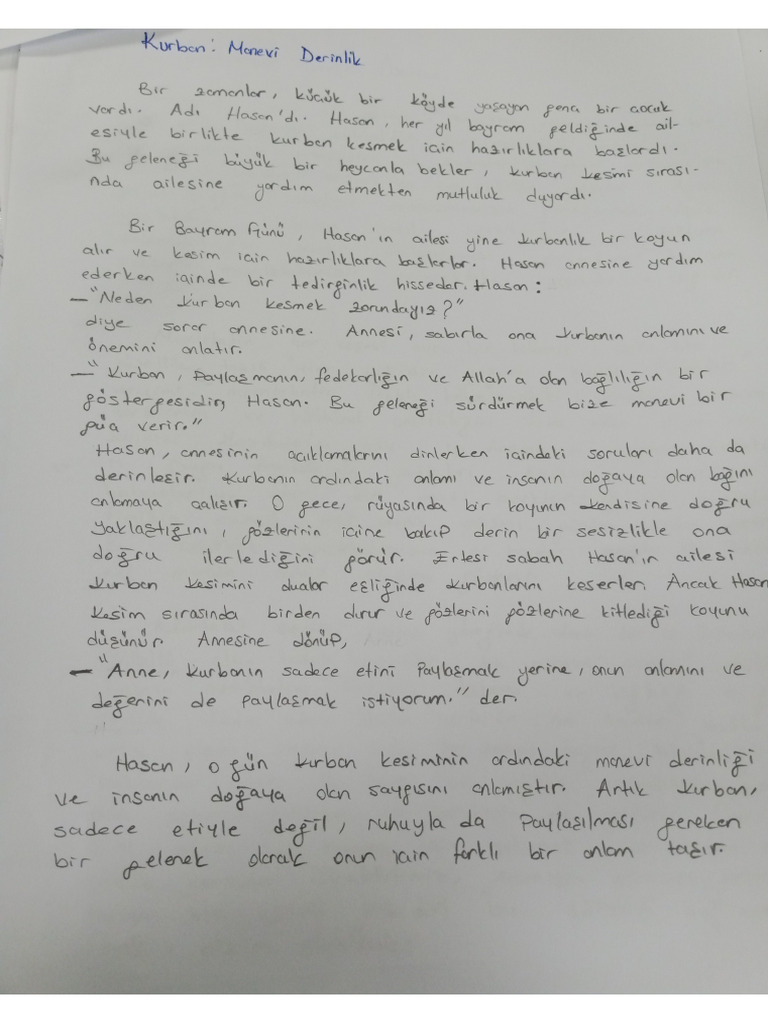 Kurban: Manevi Derinlik
Bir zamanlar, küçük bir köyde yaşayan genç bir çocuk
vardı. Adı Hasan'dı. Hasan, her yıl bayram geldiğinde ail-
esiyle birlikte kurban kesmek için hazırlıklara başlardı.
Bu geleneği büyük bir heycanla bekler, kurban kesimi sırası-
nda ailesine yardım etmekten mutluluk duyardı.
Bir Bayram Günü, Hasan'ın ailesi yine kurbanlık bir koyun
alır ve kesim için hazırlıklara başlarlar. Hasan annesine yardım
ederken içinde bir tedirginlik hisseder. Hasan:
—"Neden kurban kesmek zorundayız?"
diye sorar annesine. Annesi, sabırla ona kurbanın anlamını ve
önemini anlatır.
—"Kurban, paylaşmanın, fedekarlığın ve Allah'a olan bağlılığın bir
göstergesidir, Hasan. Bu geleneği sürdürmek bize manevi bir
güç verir."
Hasan, annesinin açıklamalarını dinlerken içindeki soruları daha da
derinleşir. Kurbanın ardındaki anlamı ve insanın doğaya olan bağını
anlamaya çalışır. O gece, rüyasında bir koyunun kendisine doğru
yaklaştığını, gözlerinin içine bakıp derin bir sesizlikle ona
doğru ilerlediğini görür. Ertesi sabah Hasan'ın ailesi
kurban kesimini dualar eşliğinde kurbanlarını keserler. Ancak Hasan
kesim sırasında birden durur ve gözlerini gözlerine kitlediği koyunu
düşünür. Annesine dönüp,
—"Anne, kurbanın sadece etini paylaşmak yerine, onun anlamını ve
değerini de paylaşmak istiyorum." der.
Hasan, o gün kurban kesiminin ardındaki manevi derinliği
ve insanın doğaya olan saygısını anlamıştır. Artık kurban,
sadece etiyle değil, ruhuyla da paylaşılması gereken
bir gelenek olarak onun için farklı bir anlam taşır.